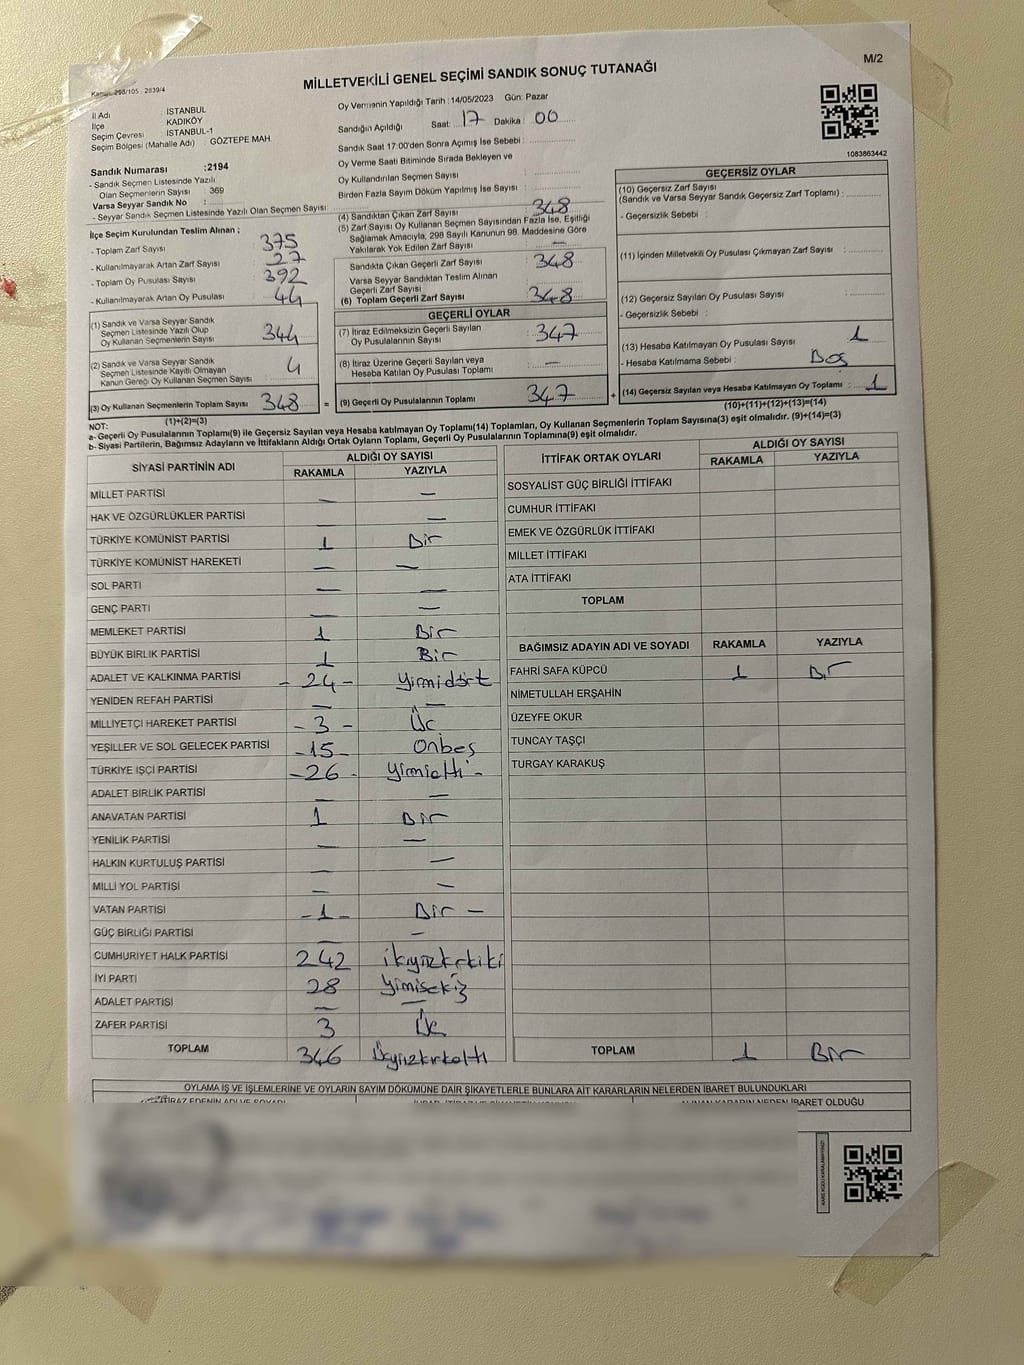 M/2
MİLLETVEKİLİ GENEL SEÇİMİ SANDIK SONUÇ TUTANAĞI
İl Adı : İSTANBUL
İlçe : KADIKÖY
Seçim Çevresi : İSTANBUL-1
Seçim Bölgesi (Mahalle Adı) GÖZTEPE MAH.
Oy Vermenin Yapıldığı Tarih : 14/05/2023 Gün: Pazar
Sandığın Açıldığı Saat: 17 Dakika : 00
Sandık Saat 17:00'den Sonra Açımış İse Sebebi :
Oy Verme Saati Bitiminde Sırada Bekleyen ve
Oy Kullandırılan Seçmen Sayısı :
Birden Fazla Sayım Döküm Yapılmış İse Sayısı :
1083863442
Sandık Numarası :2194
- Sandık Seçmen Listesinde Yazılı
Olan Seçmenlerin Sayısı : 369
Varsa Seyyar Sandık No :
- Seyyar Sandık Seçmen Listesinde Yazılı Olan Seçmen Sayısı:
İlçe Seçim Kurulundan Teslim Alınan ;
- Toplam Zarf Sayısı : 375
- Kullanılmayarak Artan Zarf Sayısı : 27
- Toplam Oy Pusulası Sayısı : 392
- Kullanılmayarak Artan Oy Pusulası : 44
(1) Sandık ve Varsa Seyyar Sandık
Seçmen Listesinde Yazılı Olup
Oy Kullanan Seçmenlerin Sayısı : 344
(2) Sandık ve Varsa Seyyar Sandık
Seçmen Listesinde Kayıtlı Olmayan
Kanun Gereği Oy Kullanan Seçmen Sayısı : 4
(3) Oy Kullanan Seçmenlerin Toplam Sayısı : 348
(1)+(2)=(3)
(4) Sandıktan Çıkan Zarf Sayısı : 348
(5) Zarf Sayısı Oy Kullanan Seçmen Sayısından Fazla İse, Eşitliği
Sağlamak Amacıyla, 298 Sayılı Kanunun 98. Maddesine Göre
Yakılarak Yok Edilen Zarf Sayısı : —
Sandıkta Çıkan Geçerli Zarf Sayısı : 348
Varsa Seyyar Sandıktan Teslim Alınan
Geçerli Zarf Sayısı :
(6) Toplam Geçerli Zarf Sayısı : 348
GEÇERLİ OYLAR
(7) İtiraz Edilmeksizin Geçerli Sayılan
Oy Pusulasının Sayısı : 347
(8) İtiraz Üzerine Geçerli Sayılan veya
Hesaba Katılan Oy Pusulası Toplamı : —
= (9) Geçerli Oy Pusulalarının Toplamı : 347 +
GEÇERSİZ OYLAR
(10) Geçersiz Zarf Sayısı
(Sandık ve Varsa Seyyar Sandık Geçersiz Zarf Toplamı) :
- Geçersizlik Sebebi :
(11) İçinden Milletvekili Oy Pusulası Çıkmayan Zarf Sayısı :
(12) Geçersiz Sayılan Oy Pusulası Sayısı :
- Geçersizlik Sebebi :
(13) Hesaba Katılmayan Oy Pusulası Sayısı : 1
- Hesaba Katılmama Sebebi : Boş
(14) Geçersiz Sayılan veya Hesaba Katılmayan Oy Toplamı : 1
(10)+(11)+(12)+(13)=(14)
NOT:
a- Geçerli Oy Pusulalarının Toplamı(9) ile Geçersiz Sayılan veya Hesaba katılmayan Oy Toplamı(14) Toplamları, Oy Kullanan Seçmenlerin Toplam Sayısına(3) eşit olmalıdır. (9)+(14)=(3)
b- Siyasi Partilerin, Bağımsız Adayların ve İttifakların Aldığı Ortak Oyların Toplamı, Geçerli Oy Pusulalarının Toplamına(9) eşit olmalıdır.
SİYASİ PARTİNİN ADI ALDIĞI OY SAYISI
RAKAMLA YAZIYLA
MİLLET PARTİSİ — —
HAK VE ÖZGÜRLÜKLER PARTİSİ — —
TÜRKİYE KOMÜNİST PARTİSİ 1 Bir
TÜRKİYE KOMÜNİST HAREKETİ — —
SOL PARTİ — —
GENÇ PARTİ — —
MEMLEKET PARTİSİ 1 Bir
BÜYÜK BİRLİK PARTİSİ 1 Bir
ADALET VE KALKINMA PARTİSİ - 24 - Yirmidört
YENİDEN REFAH PARTİSİ — —
MİLLİYETÇİ HAREKET PARTİSİ - 3 - Üç
YEŞİLLER VE SOL GELECEK PARTİSİ - 15 - Onbeş
TÜRKİYE İŞÇİ PARTİSİ - 26 - Yirmialtı -
ADALET BİRLİK PARTİSİ — —
ANAVATAN PARTİSİ 1 Bir
YENİLİK PARTİSİ — —
HALKIN KURTULUŞ PARTİSİ — —
MİLLİ YOL PARTİSİ — —
VATAN PARTİSİ - 1 - Bir -
GÜÇ BİRLİĞİ PARTİSİ — —
CUMHURİYET HALK PARTİSİ 242 ikiyüzkırkiki
İYİ PARTİ 28 Yirmisekiz
ADALET PARTİSİ — —
ZAFER PARTİSİ 3 Üç
TOPLAM 346 Üçyüzkırkaltı
İTTİFAK ORTAK OYLARI ALDIĞI OY SAYISI
RAKAMLA YAZIYLA
SOSYALİST GÜÇ BİRLİĞİ İTTİFAKI
CUMHUR İTTİFAKI
EMEK VE ÖZGÜRLÜK İTTİFAKI
MİLLET İTTİFAKI
ATA İTTİFAKI
TOPLAM
BAĞIMSIZ ADAYIN ADI VE SOYADI RAKAMLA YAZIYLA
FAHRİ SAFA KÜPCÜ 1 Bir
NİMETULLAH ERŞAHİN
ÜZEYFE OKUR
TUNCAY TAŞÇI
TURGAY KARAKUŞ
TOPLAM 1 Bir
OYLAMA İŞ VE İŞLEMLERİNE VE OYLARIN SAYIM DÖKÜMÜNE DAİR ŞİKAYETLERLE BUNLARA AİT KARARLARIN NELERDEN İBARET BULUNDUKLARI
ALINAN KARARIN NEDEN İBARET OLDUĞU